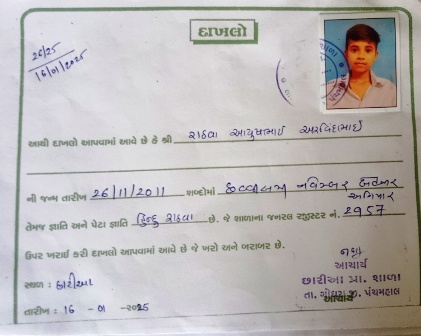 દાખલો
26/25
16/01/2025
આથી દાખલો આપવામાં આવે છે કે શ્રી રાઠવા આયુષભાઈ અરવિંદભાઈ
ની જન્મ તારીખ 26/11/2011 શબ્દોમાં છવ્વીસ નવેમ્બર બે હજાર
અગિયાર
તેમજ જ્ઞાતિ અને પેટા જ્ઞાતિ હિન્દુ રાઠવા છે. જે શાળાના જનરલ રજીસ્ટર નં. 2957
ઉપર ખરાઈ કરી દાખલો આપવામાં આવે છે જે ખરો અને બરાબર છે.
સ્થળ : છારીઆ
તારીખ : 16 - 01 - 2025
આચાર્ય
છારીઆ પ્રા. શાળા
તા. ગોધરા જી. પંચમહાલ
આચાર્ય